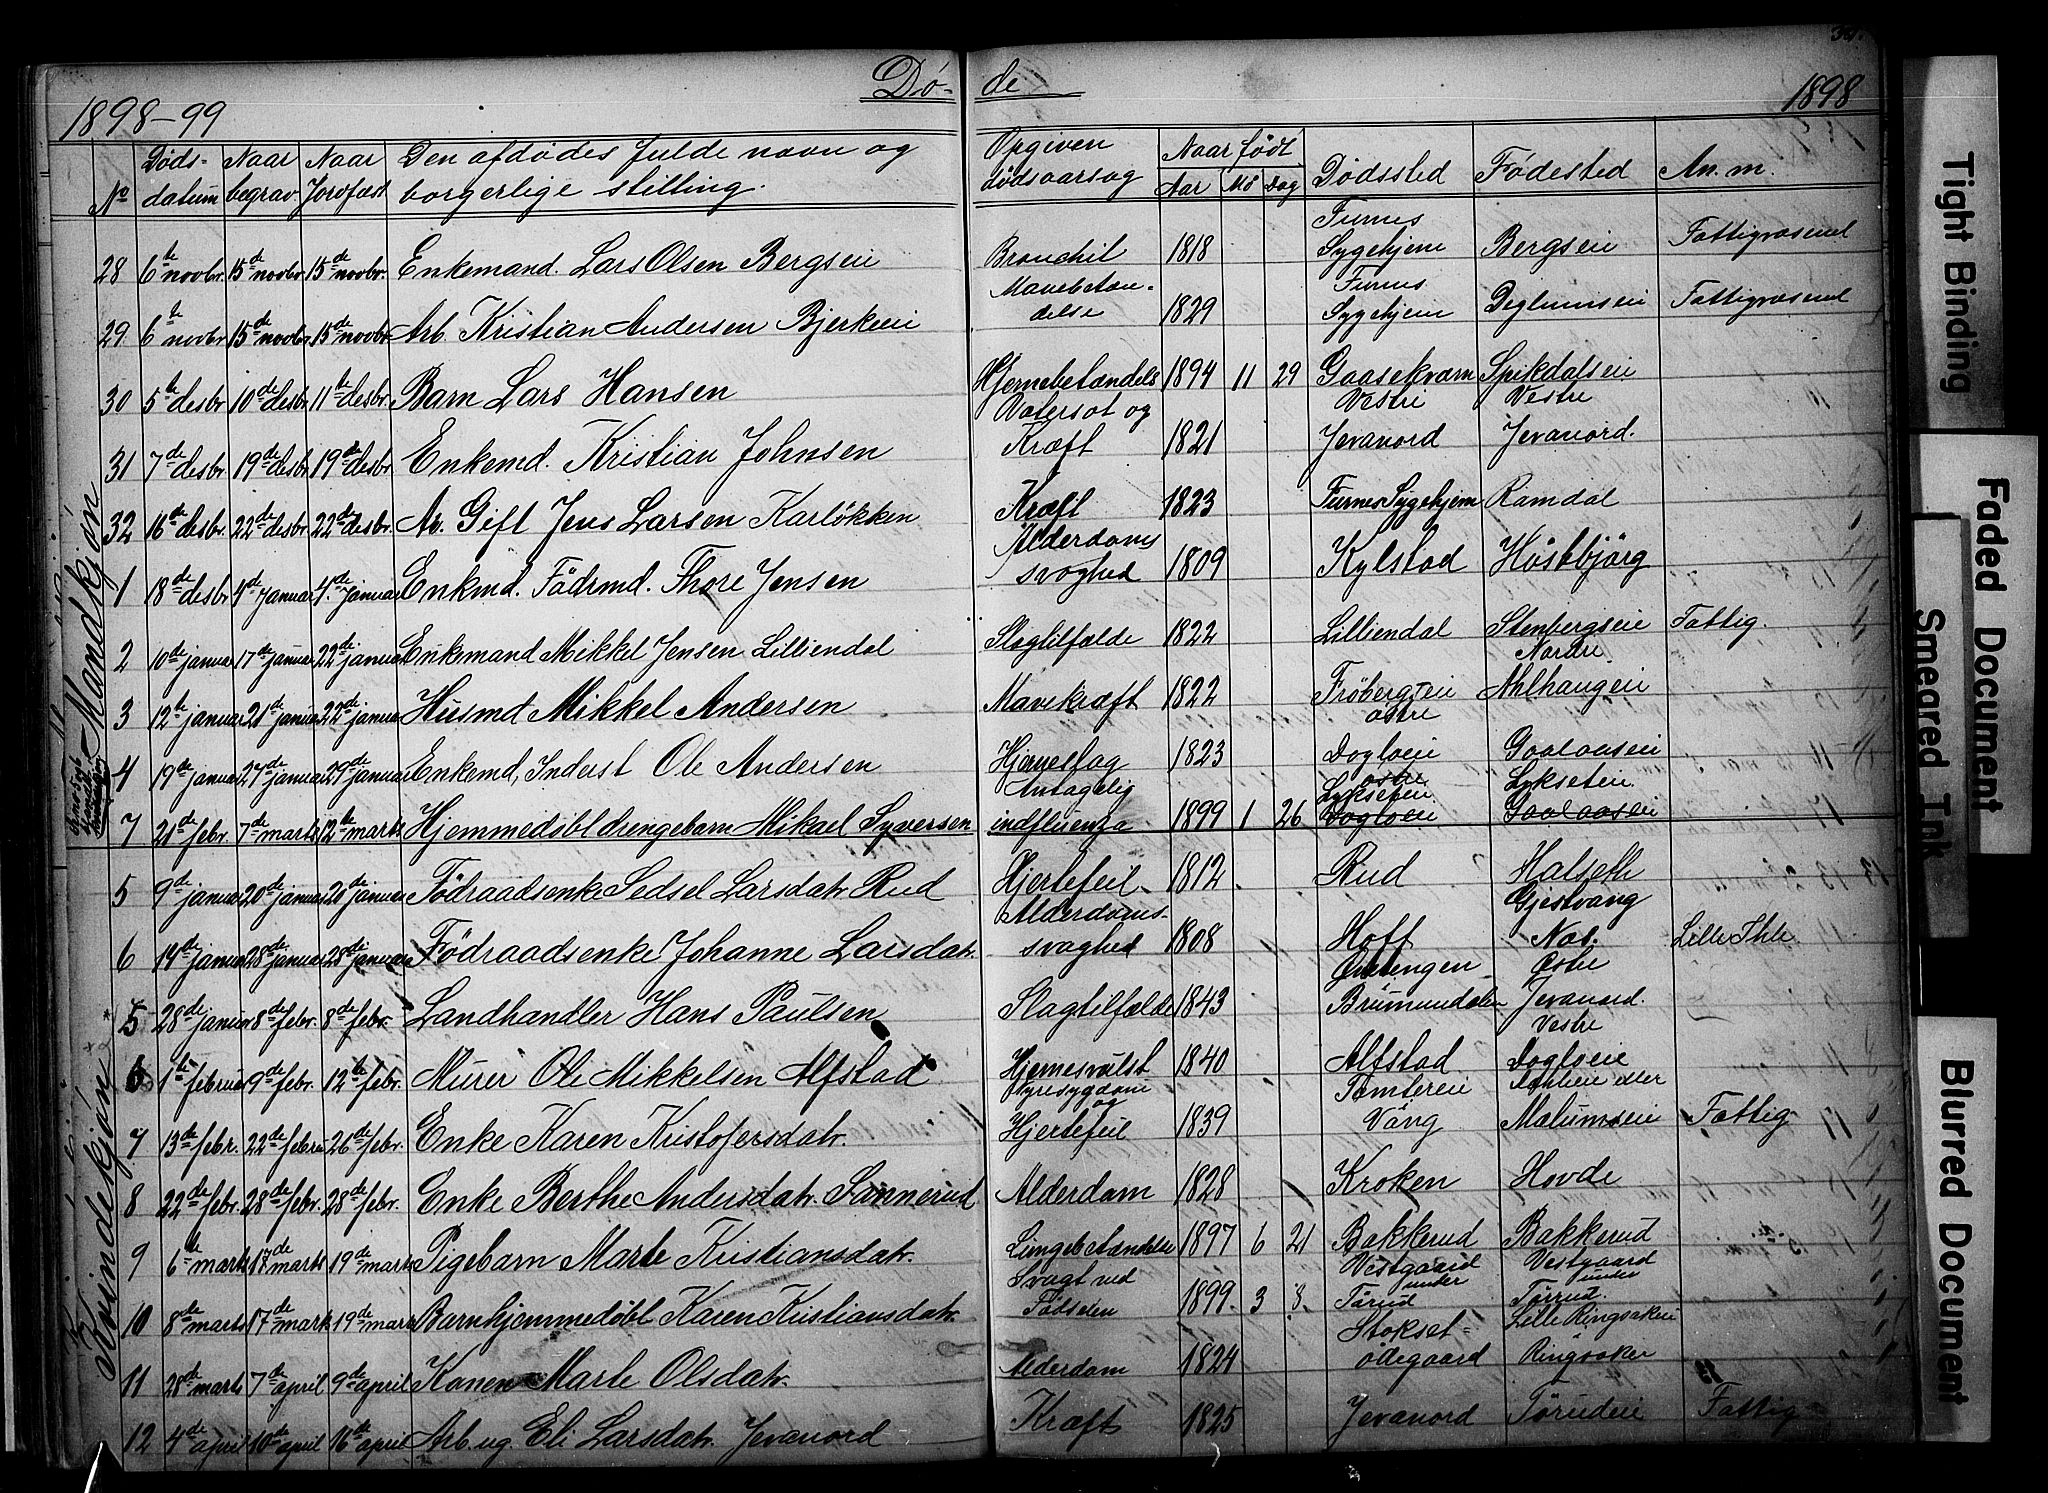 Dø- de
1898-99
1898
No
Døds-datum
Naar begrav.
Naar Jordfæst
Den afdødes fulde navn og borgerlige stilling.
Opgiven dødsaarsag
Naar født
Aar Md Dag
Dødssted
Fødested
An. m.
Mandkjøn
28 6te novbr. 15de novbr. 15de novbr. Enkemand. Lars Olsen Bergseie Bronchit 1818 Furnes Sygehjem Bergseie Fattigvæsenet
29 6te novbr 15de novbr 15de novbr Arb. Kristian Andersen Bjerkeeie Mavebetændelse 1829 Furnes Sygehjem Deglumseie Fattigvæsenet
30 5te desbr 10de desbr 11te desbr. Barn Lars Hansen Hjernebetændels 1894 11 29 Gaasekværn Spikdalseie
31 7de desbr. 19de desbr 19de desbr. Enkemd. Kristian Johnsen Vatersot og Kræft 1821 Vestre Jevanord Vestre Jevanord.
32 16de desbr. 22de desbr 22de desbr. Av. Gift Jens Larsen Karløkken Kræft 1823 Furnes Sygehjem Ramdal
1 18de desbr 4de januar 4de januar Enkmd. Fødrmd. Thore Jensen Alderdoms svaghed 1809 Kylstad Høstbjørg
2 10de januar 17de januar 22de januar Enkemand Mikkel Jensen Lilliendal Slagtilfælde 1822 Lilliendal Stenbergseie Fattig.
3 12te januar 21de januar 22de januar Husmd Mikkel Andersen Mavekræft 1822 Frøbergseie Nordre Ahlhaugeie
4 19de januar 27de januar 29de januar Enkemd, Inderst Ole Andersen Hjerneslag 1823 østre Dogloeie Gaalaaseie
7 21de febr. 7de marts 12te marts. Hjemmedøbt drengebarn Mikael Syversen Antagelig indfluenza 1899 1 26 østre Lykseteie Dogloeie Lykseteie Gaalaaseie
Kvindekjøn
5 9de januar 20de januar 20de januar Fødraadsenke Sedsel Larsdatr Rud Hjertefeil 1812 Rud Halseth
6 14de januar 28de januar 28de januar Fødraadsenke Johanne Larsdatr. Alderdoms-svaghed 1808 Hoff Gjestvang Nas. Lille Ihle
5 28de januar 8de febr. 8de febr. Landhandler Hans Paulsen Slagtilfælde 1843 Brumunddalen Østre Jevanord.
6 1te februar 9de febr. 12te febr. Murer Ole Mikkelsen Alfstad Hjernesvulst 1840 Alfstad Vestre Dogloeie
7 13de febr. 22de februar 26de febr. Enke Karen Kristofersdatr. Nyresygdom og Hjertefeil 1839 Tomtereie Vang Malumseie Fattig
8 22de febr. 28de febr. 28de febr. Enke Berthe Andersdatr. Sannerud Alderdom 1828 Kroken Hovde
9 6te marts 17de marts 19de marts Pigebarn Marte Kristiansdatr. Lungebetændelse 1897 6 21 Bakkerud Bakkerud
10 8de marts 17de mark 19de mark Barn hjemmedøbt Karen Kristiansdatr. Svagt ved Fødselen 1899. 3 8. Vestgaard under Tørud Vestgaard under Tørrud.
11 28de marts 7de april 9de april Konen Marte Olsdatr. Alderdom 1824 Stokset-ødegaard Lille Ringsakereie Ringsaker
12 4de april 10de april 16de april Arb. ug. Eli Larsdatr. Jevanord Kræft 1825 Jevanord Tørudeie Fattig
Tight Binding
Faded Document
Smeared Ink
Blurred Document